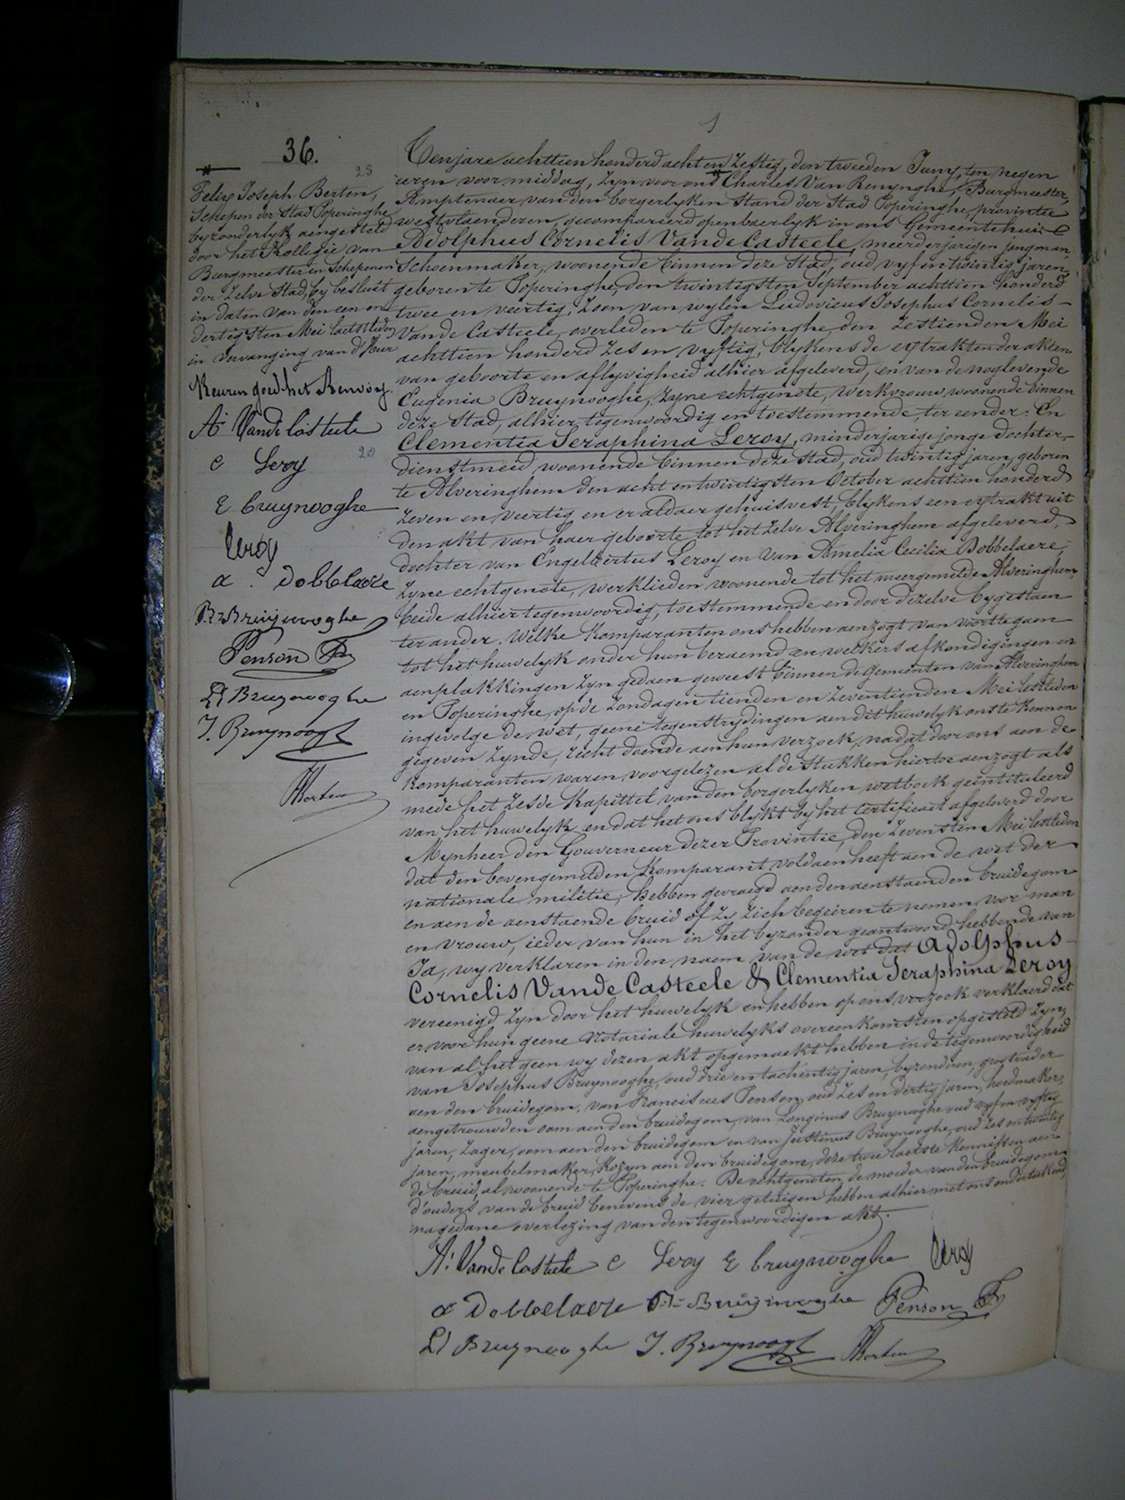 36.
25
Felix Joseph Berten,
Schepen der Stad Poperinghe
byzonderlyk aengesteld
door het Kollegie van
Burgmeester en Schepenen
der Zelve Stad, by besluit
in daten van den een en
dertigsten Mei laetstleden
in vervanging van d'heer
Keuren goed het Renvoy
A: VandeCasteele
C Leroy
20
E bruynooghe
Leroy
a. Dobbelaere
Bruynooghe
Penson
Ls Bruynooghe
J. Bruynooghe
Berten
1
Ten jare achttien honderd acht en Zestig, den tweeden Juny, ten negen
uren voormiddag, Zyn voor ons Charles Van Renynghe, Burgmeester,
Amptenaer van den borgerlyken Stand der Stad Poperinghe, provintie
westvlaenderen, gecompareerd openbaerlyk in ons Gemeentehuis
Adolphus Cornelis VandeCasteele, meerderjarigen jongman
Schoenmaker, woonende binnen deze Stad, oud vyfentwintig jaren,
geboren te Poperinghe, den twintigsten September achttien honderd
twee en veertig, Zoon van wylen Ludovicus Josephus Cornelis
VandeCasteele, overleden te Poperinghe, den Zestienden Mei
achttien honderd Zes en vyftig, blykens de extrakten der akten
van geboorte en aflyvigheid alhier afgeleverd, en van de noglevende
Eugenia Bruynooghe, Zyne echtgenote, werkvrouw, woonende binnen
deze Stad, alhier tegenwoordig en toestemmende, ter eender. En
Clementia Seraphina Leroy, minderjarige jonge dochter,
dienstmeid, woonende binnen deze Stad, oud twintig jaren, geboren
te Alveringhem den acht en twintigsten October achttien honderd
Zeven en veertig en er aldaer gehuisvest, blykens een extrakt uit
den akt van haer geboorte tot het Zelve Alveringhem afgeleverd,
dochter van Engelbertus Leroy en van Amelia Cecilia Dobbelaere,
Zyne echtgenote, werklieden woonende tot het meergemelde Alveringhem,
beide alhier tegenwoordig, toestemmende en door dezelve bygestaen
ter ander. Welke Komparanten ons hebben aenzogt van voorttegaen
tot het huwelyk onder hun beraemd en welkers afkondigingen en
aenplakkingen Zyn gedaen geweest binnen de Gemeenten van Alveringhem
en Poperinghe, op de Zondagen tienden en Zeventienden Mei lestleden
ingevolge de wet, geene tegenstrydingen aen dit huwelyk ons te kennen
gegeven Zynde, recht doende aen hun verzoek, na dat door ons aen de
Komparanten waren voorgelezen al de stukken hiertoe aenzogt als
mede het Zesde Kapittel van den borgerlyken wetboek geïntituleerd
van het huwelyk, en dat het ons blykt by het Certificaet afgeleverd door
Mynheer den Gouverneur dezer Provintie den Zevensten Mei lestleden
dat den bovengemelden Komparant voldaen heeft aen de wet der
nationale militie, Hebben gevraegd aen den aenstaenden bruidegom
en aen de aenstaende bruid of Zy Zich begeiren te nemen voor man
en vrouw, ieder van hun in het byzonder geantwoord hebbende van
Ja, wy verklaren in den naem van de wet dat Adolphus
Cornelis VandeCasteele & Clementia Seraphina Leroy
vereenigd Zyn door het huwelyk en hebben op ons verzoek verklaerd dat
er voor hun geene Notariale huwelyks overeenkomsten opgesteld Zyn,
van al het geen wy dezen akt opgemaekt hebben in de tegenwoordigheid
van Josephus Bruynooghe, oud drie en tachentig jaren, byzondren, grootvader
aen den bruidegom, van Franciscus Penson, oud Zes en dertig jaren, hoedmaker,
aengetrouwden oom aen den bruidegom, van Longinus Bruynooghe oud vyf en vyftig
jaren, Zager, oom aen den bruidegom en van Justinus Bruynooghe, oud Zes en twintig
jaren, meubelmaker, Kozyn aen den bruidegom, deze twee laetste Kennissen aen
de bruid, al woonende te Poperinghe. De echtgenoten, de moeder van den bruidegom
d'ouders van de bruid benevens de vier getuigen hebben alhier met ons onderteekend,
nagedane overlezing van den tegenwoordigen akt.
A: VandeCasteele C Leroy E bruynooghe Leroy
a Dobbelaere Bruynooghe Penson
Ls Bruynooghe J. Bruynooghe Berten